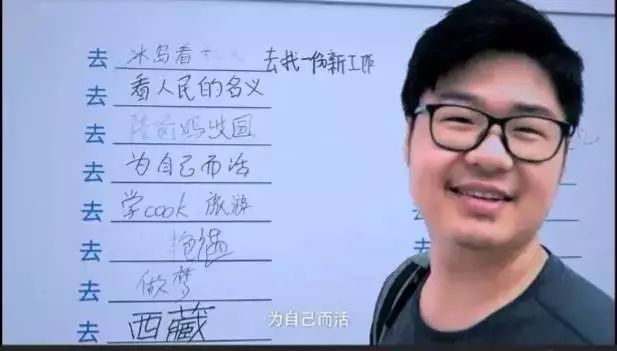 去 冰岛看 去找一份新工作
去 看人民的名义
去 陪爸妈出国
去 为自己而活
去 学cook 旅游
去 艳遇
去 做梦
去 西藏
为自己而活